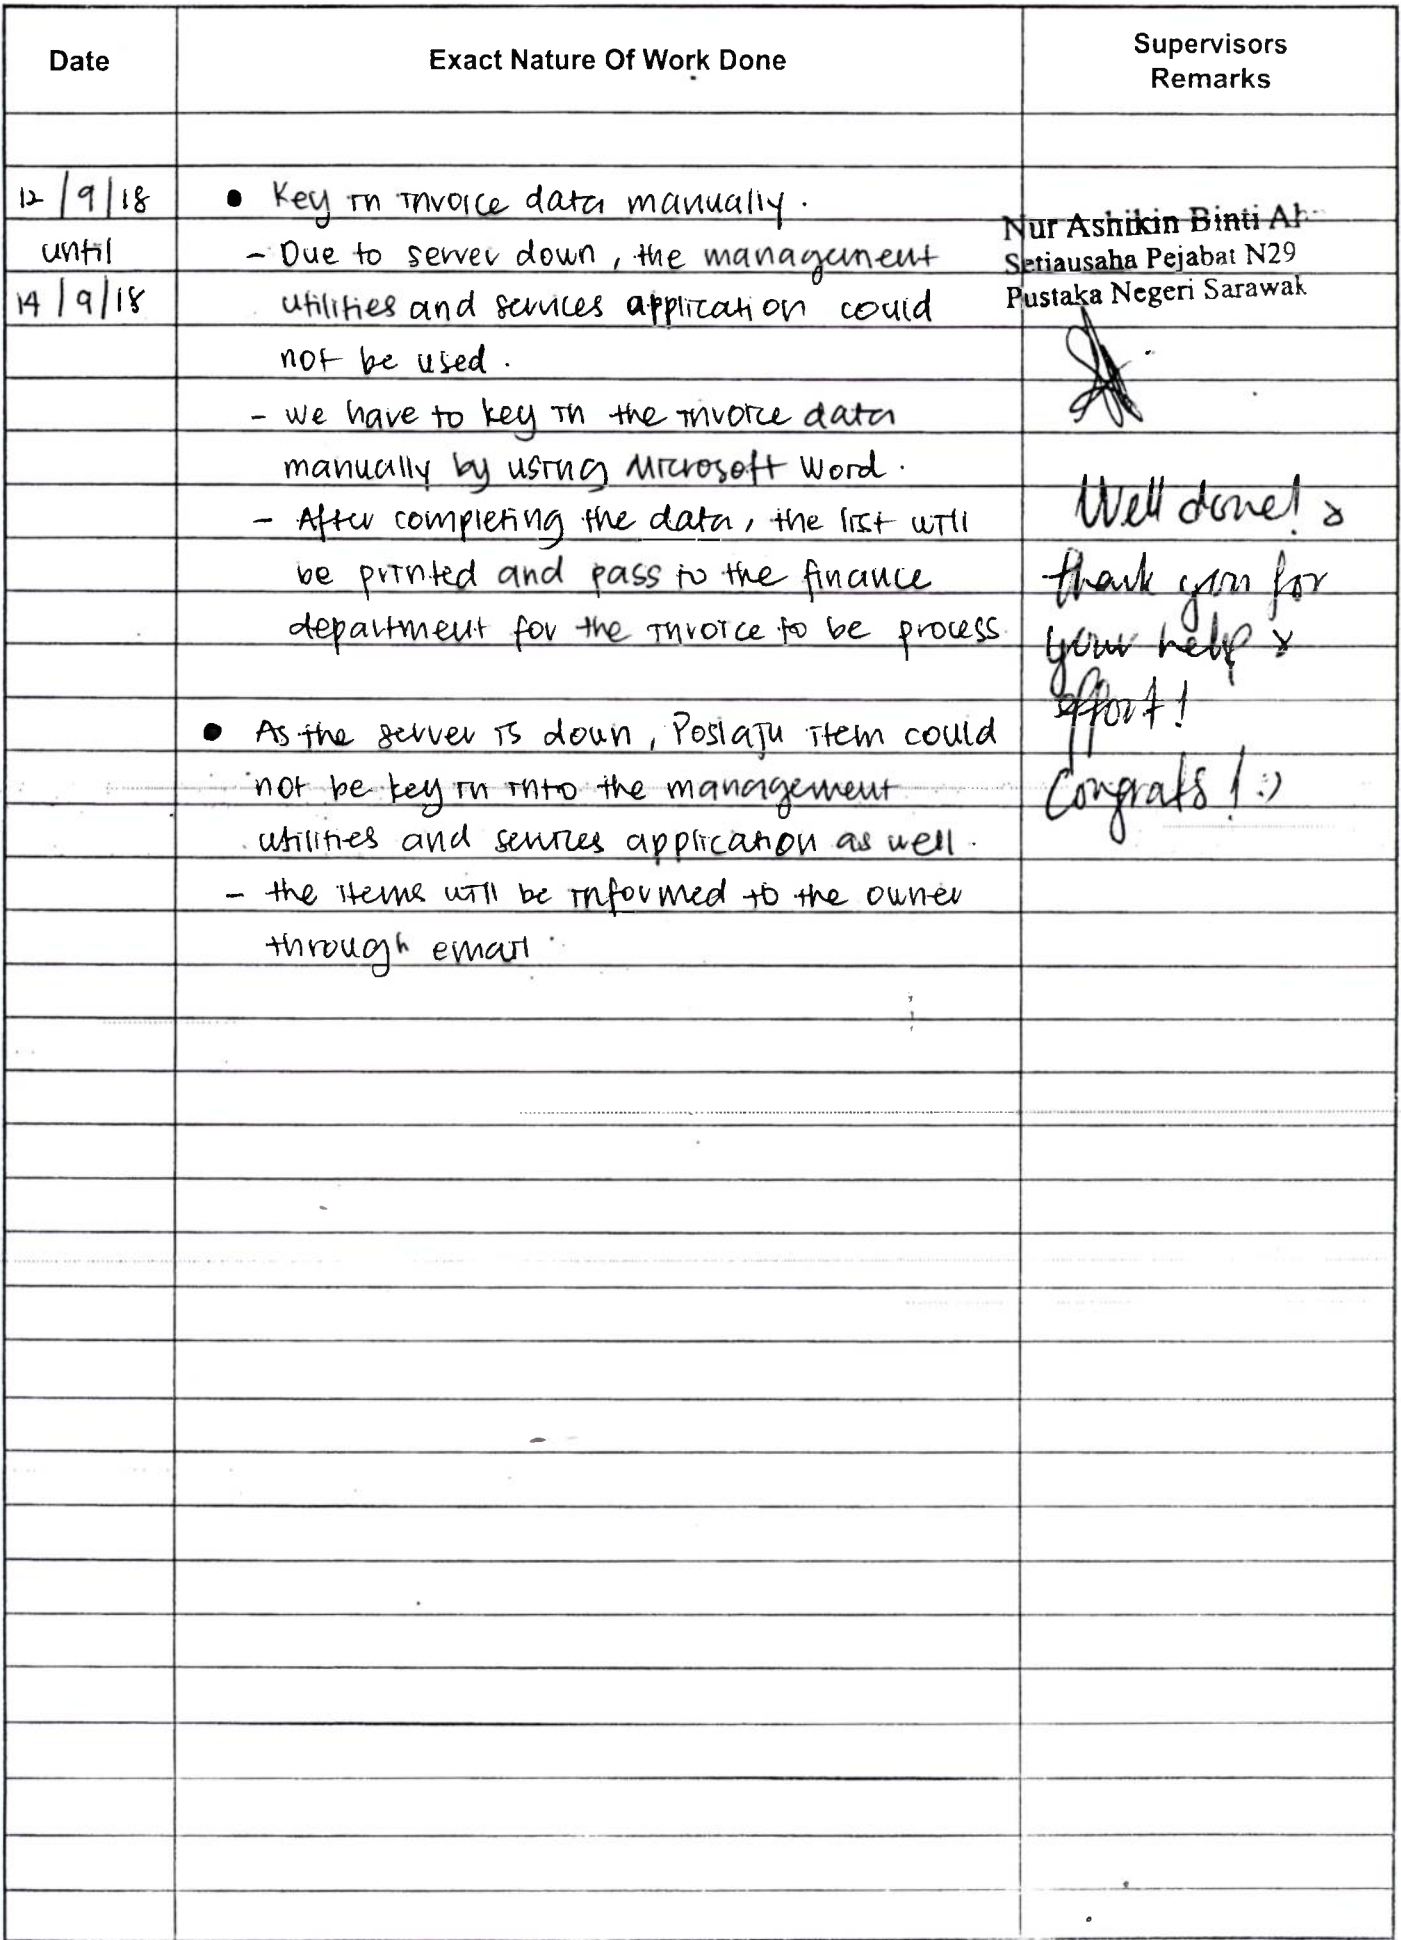 Date
Exact Nature Of Work Done
Supervisors
Remarks
12/9/18
until
14/9/18
• Key in invoice data manually.
- Due to server down, the management
utilities and services application could
not be used.
- we have to key in the invoice data
manually by using Microsoft Word.
- After completing the data, the list will
be printed and pass to the finance
department for the invoice to be process
• As the server is down, Poslaju item could
not be key in into the management
utilities and services application as well.
- the items will be informed to the owner
through email.
Nur Ashikin Binti
Setiausaha Pejabat N29
Pustaka Negeri Sarawak
Well done! &
thank you for
your help &
effort!
Congrats! :)